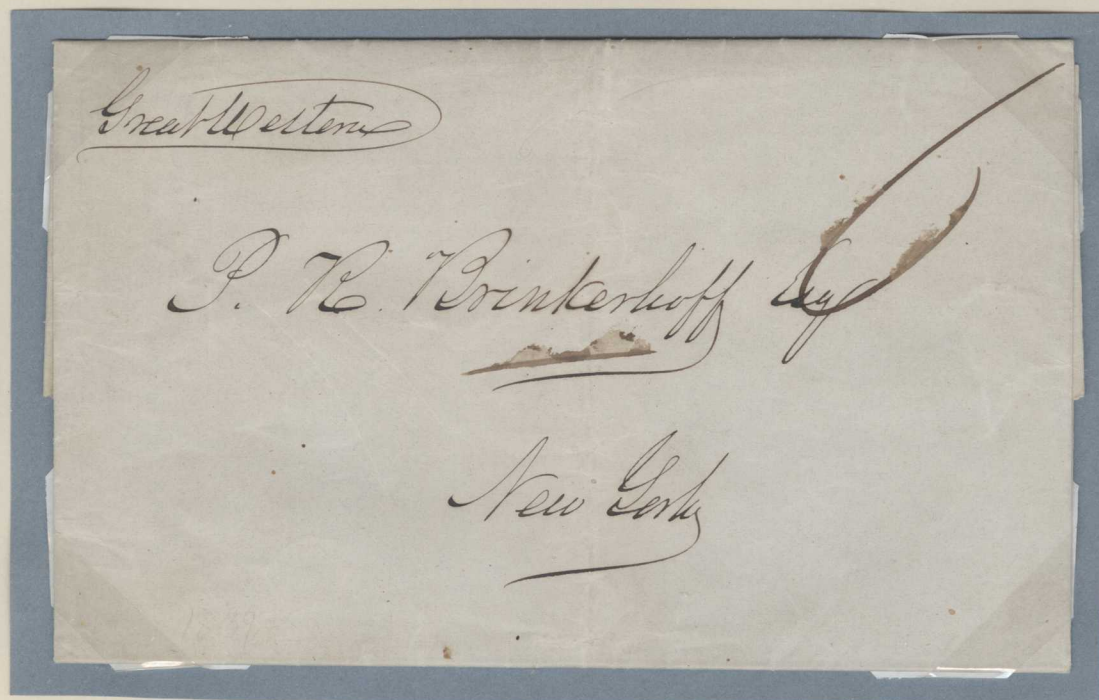 Great Western
P. R. Brinkerhoff Esq
6
New York